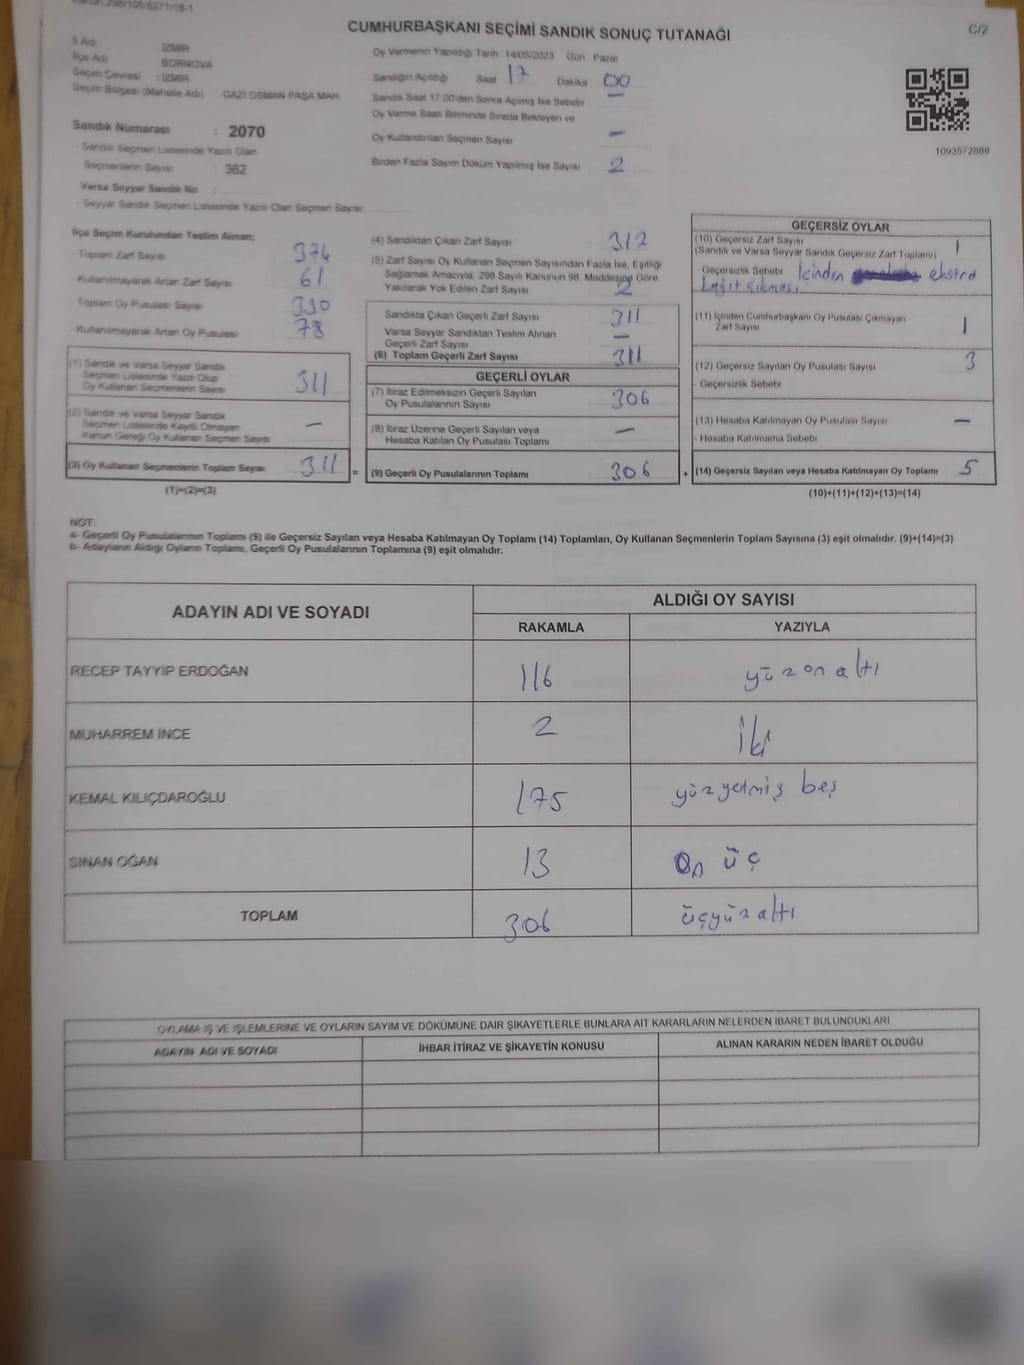 CUMHURBAŞKANI SEÇİMİ SANDIK SONUÇ TUTANAĞI
C/2
İl Adı : İZMİR
İlçe Adı : BORNOVA
Seçim Çevresi : İZMİR
Seçim Bölgesi (Mahalle Adı) : GAZİ OSMAN PAŞA MAH.
Sandık Numarası : 2070
- Sandık Seçmen Listesinde Yazılı Olan
Seçmenlerin Sayısı : 362
Varsa Seyyar Sandık No :
- Seyyar Sandık Seçmen Listesinde Yazılı Olan Seçmen Sayısı:
Oy Vermenin Yapıldığı Tarih :14/05/2023 Gün : Pazar
Sandığın Açıldığı Saat 17 Dakika 00
Sandık Saat 17:00'den Sonra Açılmış İse Sebebi —
Oy Verme Saati Bitiminde Sırada Bekleyen ve
Oy Kullandırılan Seçmen Sayısı —
Birden Fazla Sayım Döküm Yapılmış İse Sayısı 2
1093572888
İlçe Seçim Kurulundan Teslim Alınan;
- Toplam Zarf Sayısı 374
- Kullanılmayarak Artan Zarf Sayısı 61
- Toplam Oy Pusulası Sayısı 390
- Kullanılmayarak Artan Oy Pusulası 78
(1) Sandık ve Varsa Seyyar Sandık
Seçmen Listesinde Yazılı Olup
Oy Kullanan Seçmenlerin Sayısı 311
(2) Sandık ve Varsa Seyyar Sandık
Seçmen Listesinde Kayıtlı Olmayan
Kanun Gereği Oy Kullanan Seçmen Sayısı —
(3) Oy Kullanan Seçmenlerin Toplam Sayısı 311 =
(1)+(2)=(3)
(4) Sandıktan Çıkan Zarf Sayısı 312
(5) Zarf Sayısı Oy Kullanan Seçmen Sayısından Fazla İse, Eşitliği
Sağlamak Amacıyla, 298 Sayılı Kanunun 98. Maddesine Göre
Yakılarak Yok Edilen Zarf Sayısı 2
Sandıkta Çıkan Geçerli Zarf Sayısı 311
Varsa Seyyar Sandıktan Teslim Alınan
Geçerli Zarf Sayısı —
(6) Toplam Geçerli Zarf Sayısı 311
GEÇERLİ OYLAR
(7) İtiraz Edilmeksizin Geçerli Sayılan
Oy Pusulalarının Sayısı 306
(8) İtiraz Üzerine Geçerli Sayılan veya
Hesaba Katılan Oy Pusulası Toplamı —
(9) Geçerli Oy Pusulalarının Toplamı 306 +
GEÇERSİZ OYLAR
(10) Geçersiz Zarf Sayısı 1
(Sandık ve Varsa Seyyar Sandık Geçersiz Zarf Toplamı)
- Geçersizlik Sebebi İçinden ekstra
kağıt çıkması
(11) İçinden Cumhurbaşkanı Oy Pusulası Çıkmayan
Zarf Sayısı 1
(12) Geçersiz Sayılan Oy Pusulası Sayısı 3
- Geçersizlik Sebebi
(13) Hesaba Katılmayan Oy Pusulası Sayısı —
- Hesaba Katılmama Sebebi
(14) Geçersiz Sayılan veya Hesaba Katılmayan Oy Toplamı 5
(10)+(11)+(12)+(13)=(14)
NOT:
a- Geçerli Oy Pusulalarının Toplamı (9) ile Geçersiz Sayılan veya Hesaba Katılmayan Oy Toplamı (14) Toplamları, Oy Kullanan Seçmenlerin Toplam Sayısına (3) eşit olmalıdır. (9)+(14)=(3)
b- Adayların Aldığı Oyların Toplamı, Geçerli Oy Pusulalarının Toplamına (9) eşit olmalıdır.
ADAYIN ADI VE SOYADI
ALDIĞI OY SAYISI
RAKAMLA YAZIYLA
RECEP TAYYİP ERDOĞAN 116 yüz on altı
MUHARREM İNCE 2 İki
KEMAL KILIÇDAROĞLU 175 yüzyetmiş beş
SİNAN OĞAN 13 On üç
TOPLAM 306 üçyüz altı
OYLAMA İŞ VE İŞLEMLERİNE VE OYLARIN SAYIM VE DÖKÜMÜNE DAİR ŞİKAYETLERLE BUNLARA AİT KARARLARIN NELERDEN İBARET BULUNDUKLARI
ADAYIN ADI VE SOYADI İHBAR İTİRAZ VE ŞİKAYETİN KONUSU ALINAN KARARIN NEDEN İBARET OLDUĞU